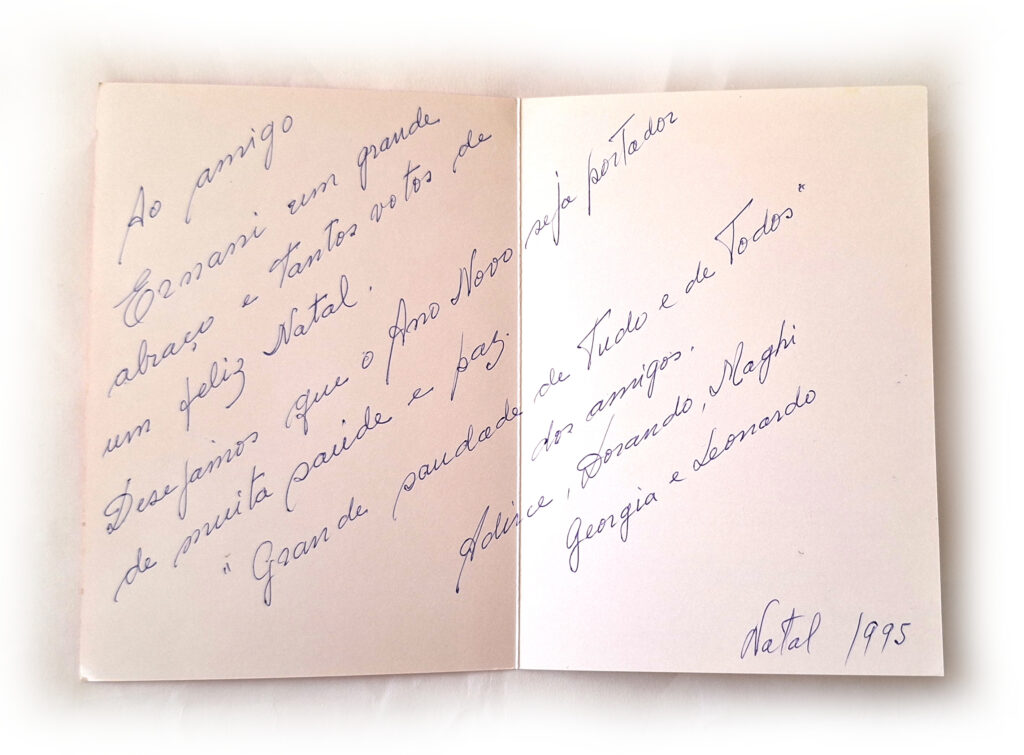 Ao amigo
Ernani um grande
abraço e tantos votos de
um feliz Natal.
Desejamos que o Ano Novo seja portador
de muita saúde e paz.
"Grande saudade de Tudo e de Todos"
dos amigos.
Adirce, Dorando, Maghi
Georgia e Leonardo
Natal 1995